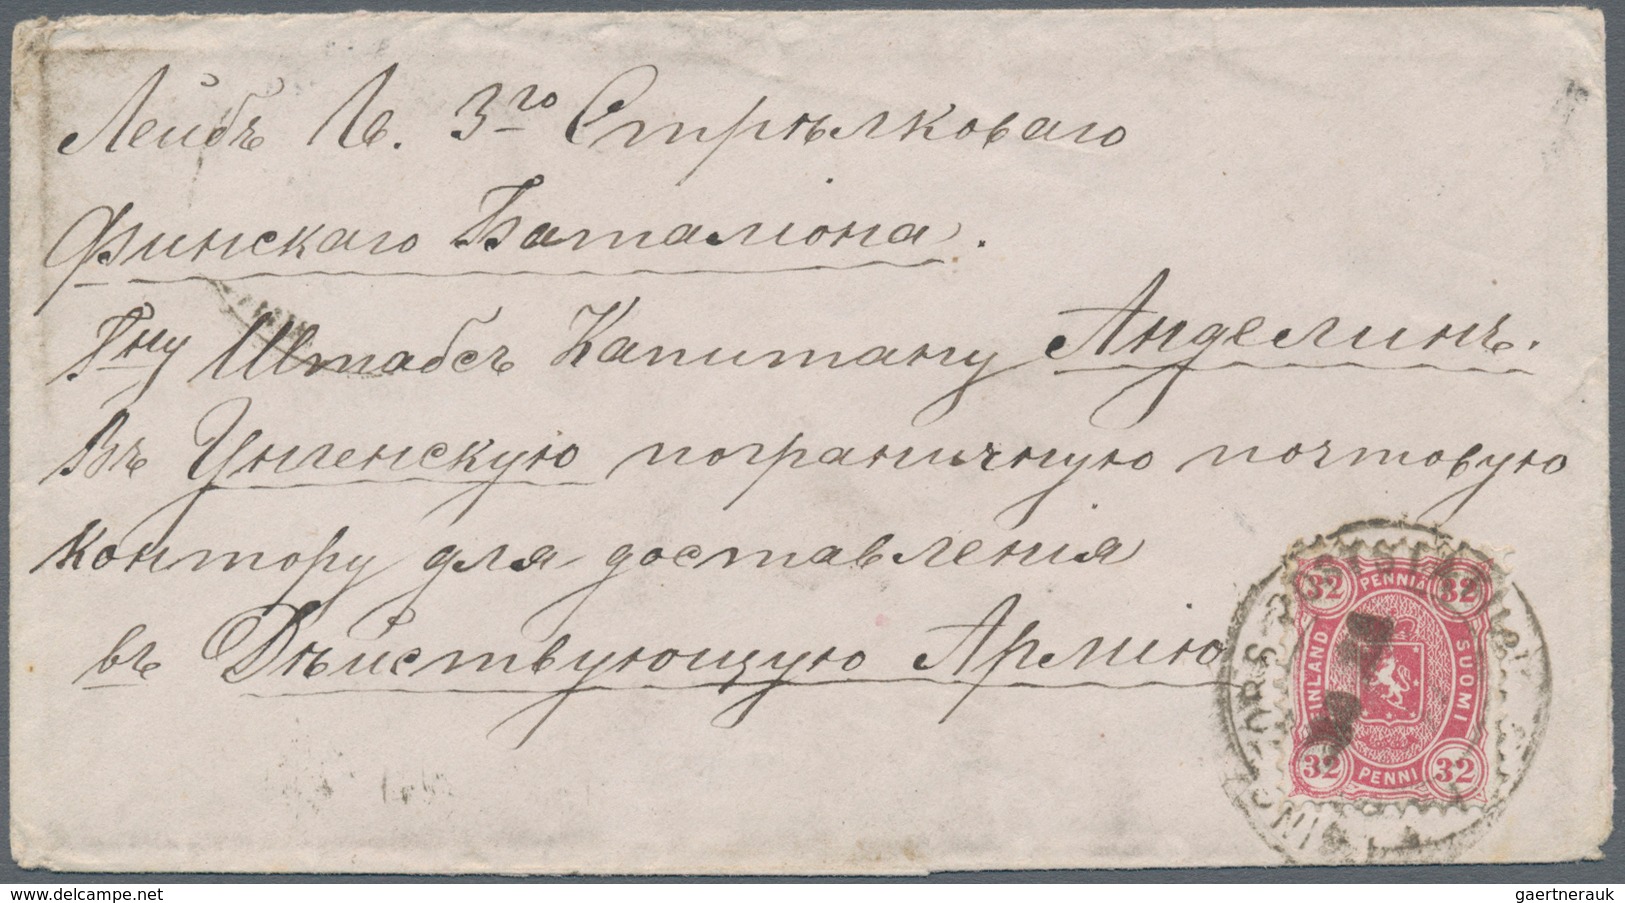 Лейбъ Гв. 3го Стрѣлковаго
Финскаго Баталіона.
Гну Штабсъ Капитану Анделинъ.
Въ Унгенскую пограничную почтовую
контору для доставленія
въ Дѣйствующую Армію
32 PENNIÄ 32
FINLAND SUOMI
32 PENNI 32
delcampe.net
gaertnerauk